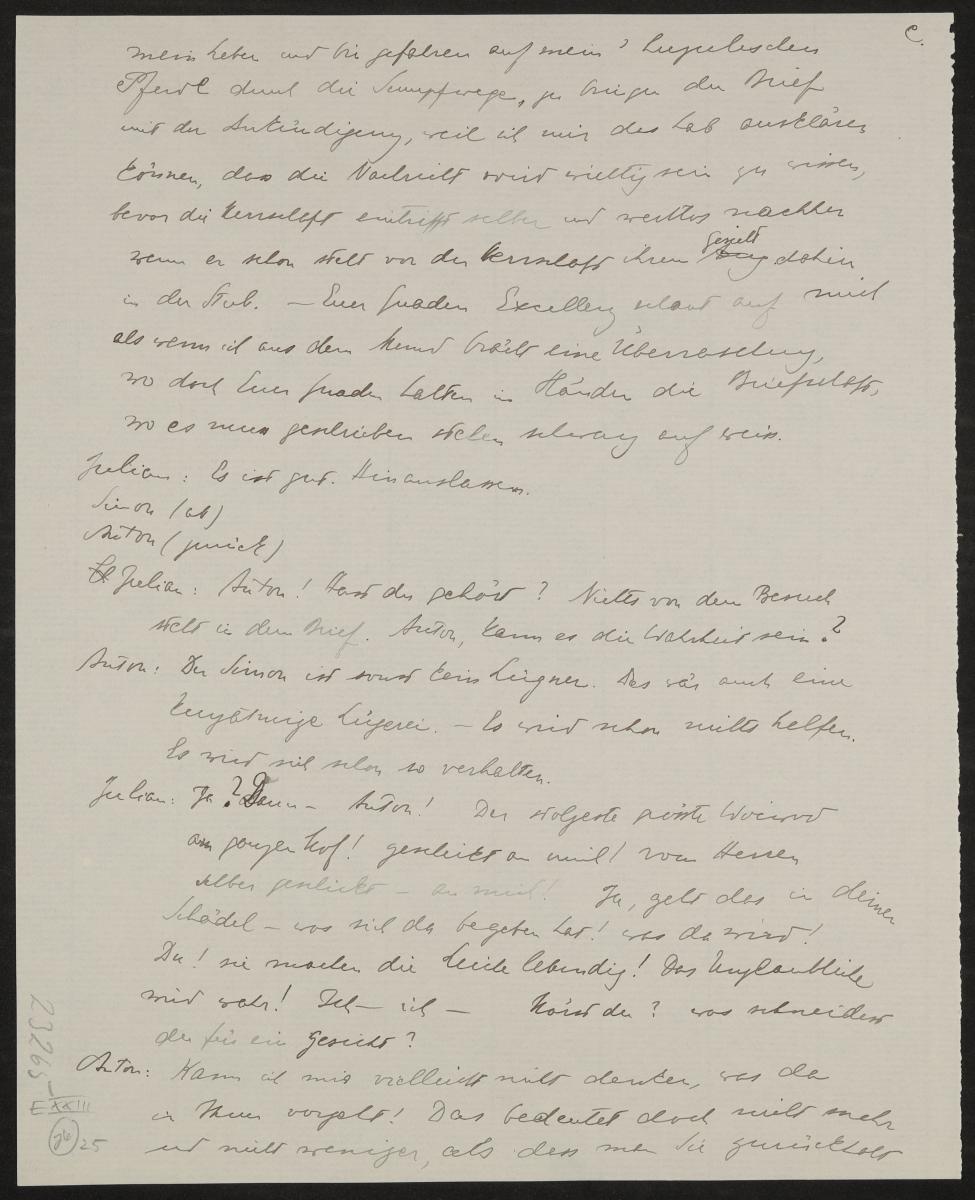 c.
mein Leben und bin gefahren auf mein
Pferdl durch die Sumpfwege, zu bringen den Brief
mit der Ankündigung, weil ich mir das hab ausklären
können, dass die Nachricht wird wichtig sein zu wissen,
bevor die Herrschaft eintrifft selber und wertlos nachher
wenn er schon steht vor der Herrschaft ihrem Gesicht dahin
in der Stub. – Euer Gnaden Excellenz schaut auf mich
als wenn ich aus dem Mund brächt eine Überraschung,
wo doch Euer Gnaden halten in Händen die Briefschaft,
wo es muss geschrieben stehen schwarz auf weiss.
Julian: Es ist gut. Hinauslassen.
Simon (ab)
Anton (zurück)
Julian: Anton! Hast du gehört? Nichts von dem Besuch
steht in dem Brief. Anton, kann es die Wahrheit sein?
Anton: Der Simon ist sonst kein Lügner. Das wär auch eine
kurzatmige Lügerei. – Es wird schon nichts helfen.
Es wird sich schon so verhalten.
Julian: Ja? Dann – Anton! Der stolzeste grösste Woiwod
am ganzen Hof! geschickt an mich! vom Herren
selber geschickt – an mich! Ja, geht das in deinen
Schädel – was sich da begeben hat! was da wird!
Du! sie machen die Leute lebendig! Das Unglaubliche
wird wahr! Ich – ich – Hörst du? was schneidest
du für ein Gesicht?
Anton: Kann ich mir vielleicht nicht denken, was da
in Ihnen vorgeht! Das bedeutet doch nicht mehr
und nicht weniger, als dass man Sie zurückholt
23265
E XXIII
25